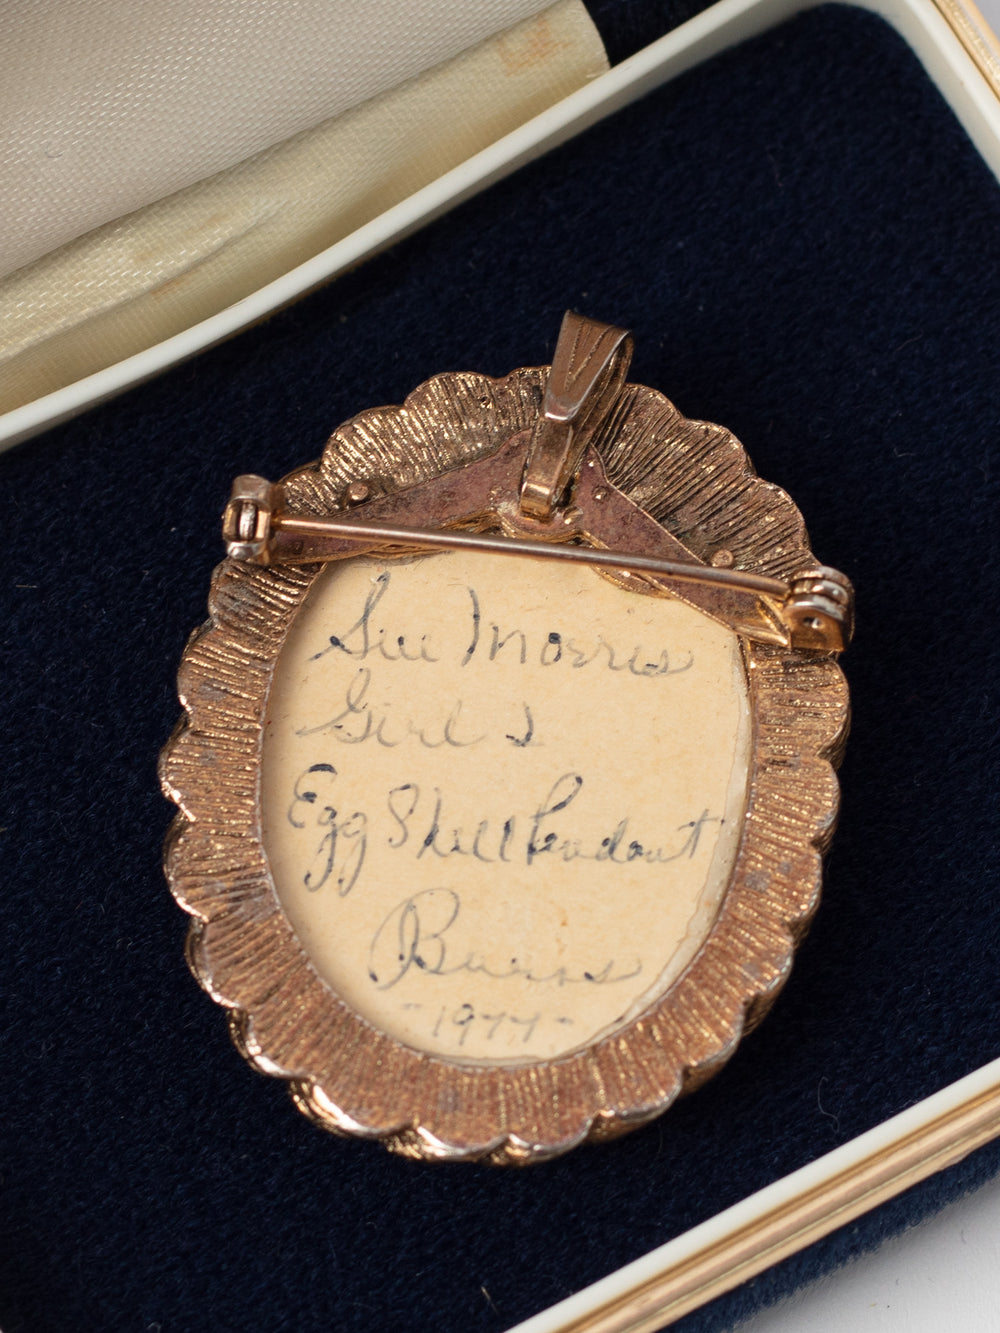 Sue Morris
Girls
Egg Shell Pendant
Burns
-1977-